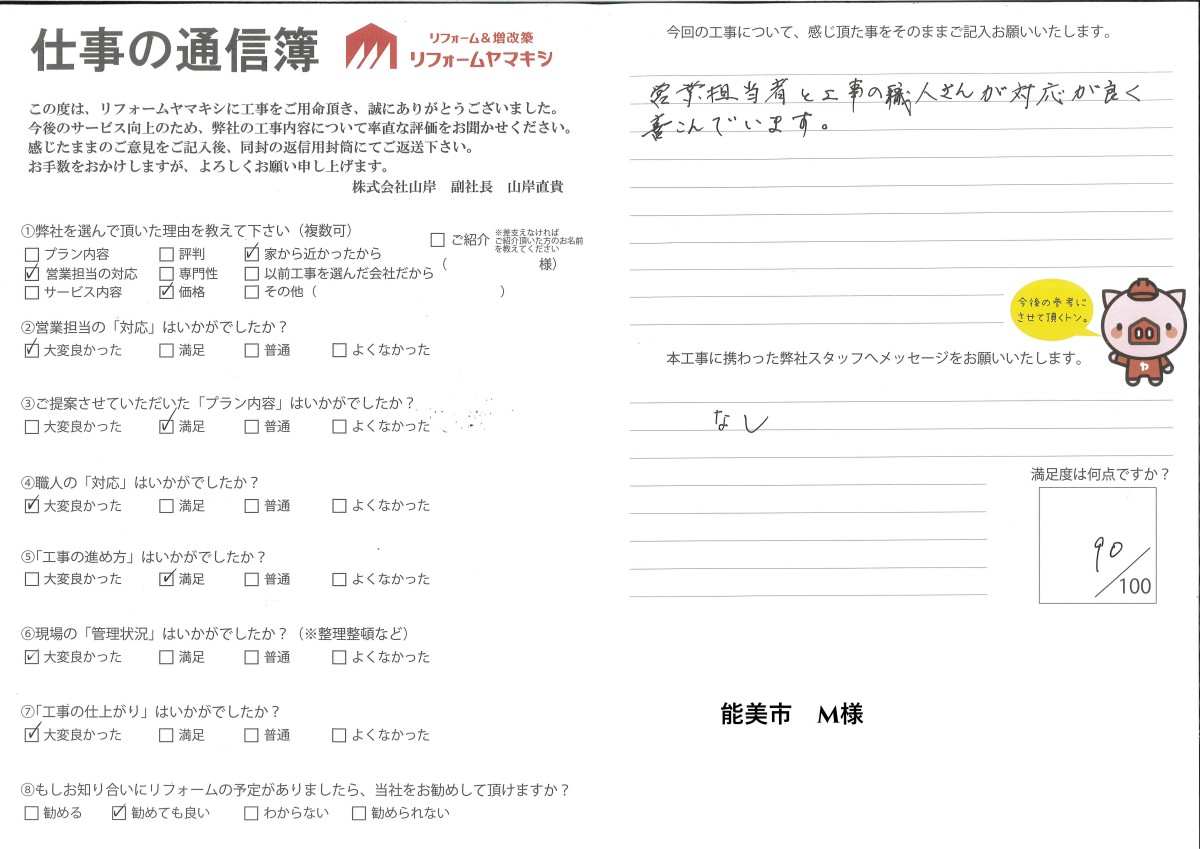 仕事の通信簿
リフォーム&増改築
リフォームヤマキシ
この度は、リフォームヤマキシに工事をご用命頂き、誠にありがとうございました。
今後のサービス向上のため、弊社の工事内容について率直な評価をお聞かせください。
感じたままのご意見をご記入後、同封の返信用封筒にてご返送下さい。
お手数をおかけしますが、よろしくお願い申し上げます。
株式会社山岸 副社長 山岸直貴
①弊社を選んで頂いた理由を教えて下さい（複数可）
□プラン内容 □評判 ☑家から近かったから
☑営業担当の対応 □専門性 □以前工事を選んだ会社だから
□サービス内容 ☑価格 □その他（ ）
□ご紹介
※差支えなければ
ご紹介頂いた方のお名前
を教えてください
（ 様）
②営業担当の「対応」はいかがでしたか？
☑大変良かった □満足 □普通 □よくなかった
③ご提案させていただいた「プラン内容」はいかがでしたか？
□大変良かった ☑満足 □普通 □よくなかった
④職人の「対応」はいかがでしたか？
☑大変良かった □満足 □普通 □よくなかった
⑤「工事の進め方」はいかがでしたか？
□大変良かった ☑満足 □普通 □よくなかった
⑥現場の「管理状況」はいかがでしたか？（※整理整頓など）
☑大変良かった □満足 □普通 □よくなかった
⑦「工事の仕上がり」はいかがでしたか？
☑大変良かった □満足 □普通 □よくなかった
⑧もしお知り合いにリフォームの予定がありましたら、当社をお勧めして頂けますか？
□勧める ☑勧めても良い □わからない □勧められない
今回の工事について、感じ頂た事をそのままご記入お願いいたします。
営業担当者と工事の職人さんが対応が良く
喜こんでいます。
今後の参考に
させて頂くトン。
ヤ
本工事に携わった弊社スタッフへメッセージをお願いいたします。
なし
満足度は何点ですか？
90
/100
能美市 M様